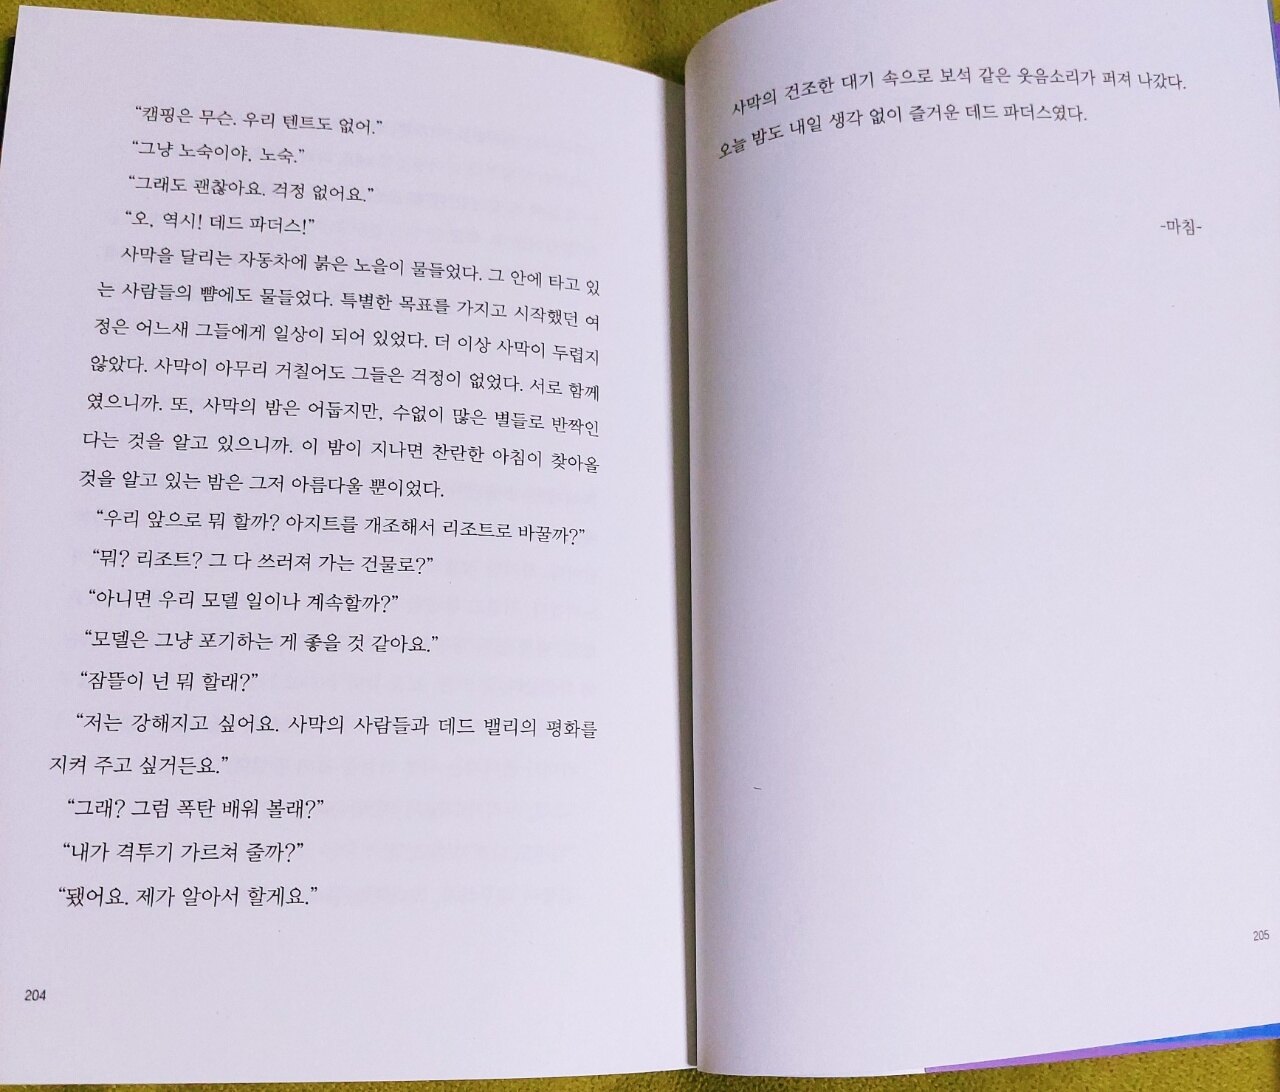 “캠핑은 무슨. 우리 텐트도 없어.”
“그냥 노숙이야, 노숙.”
“그래도 괜찮아요. 걱정 없어요.”
“오, 역시! 데드 파더스!”
사막을 달리는 자동차에 붉은 노을이 물들었다. 그 안에 타고 있
는 사람들의 뺨에도 물들었다. 특별한 목표를 가지고 시작했던 여
정은 어느새 그들에게 일상이 되어 있었다. 더 이상 사막이 두렵지
않았다. 사막이 아무리 거칠어도 그들은 걱정이 없었다. 서로 함께
였으니까. 또, 사막의 밤은 어둡지만, 수없이 많은 별들로 반짝인
다는 것을 알고 있으니까. 이 밤이 지나면 찬란한 아침이 찾아올
것을 알고 있는 밤은 그저 아름다울 뿐이었다.
“우리 앞으로 뭐 할까? 아지트를 개조해서 리조트로 바꿀까?”
“뭐? 리조트? 그 다 쓰러져 가는 건물로?”
“아니면 우리 모델 일이나 계속할까?”
“모델은 그냥 포기하는 게 좋을 것 같아요.”
“잠뜰이 넌 뭐 할래?”
“저는 강해지고 싶어요. 사막의 사람들과 데드 밸리의 평화를
지켜 주고 싶거든요.”
“그래? 그럼 폭탄 배워 볼래?”
“내가 격투기 가르쳐 줄까?”
“됐어요. 제가 알아서 할게요.”
204
사막의 건조한 대기 속으로 보석 같은 웃음소리가 퍼져 나갔다.
오늘 밤도 내일 생각 없이 즐거운 데드 파더스였다.
-마침-
205